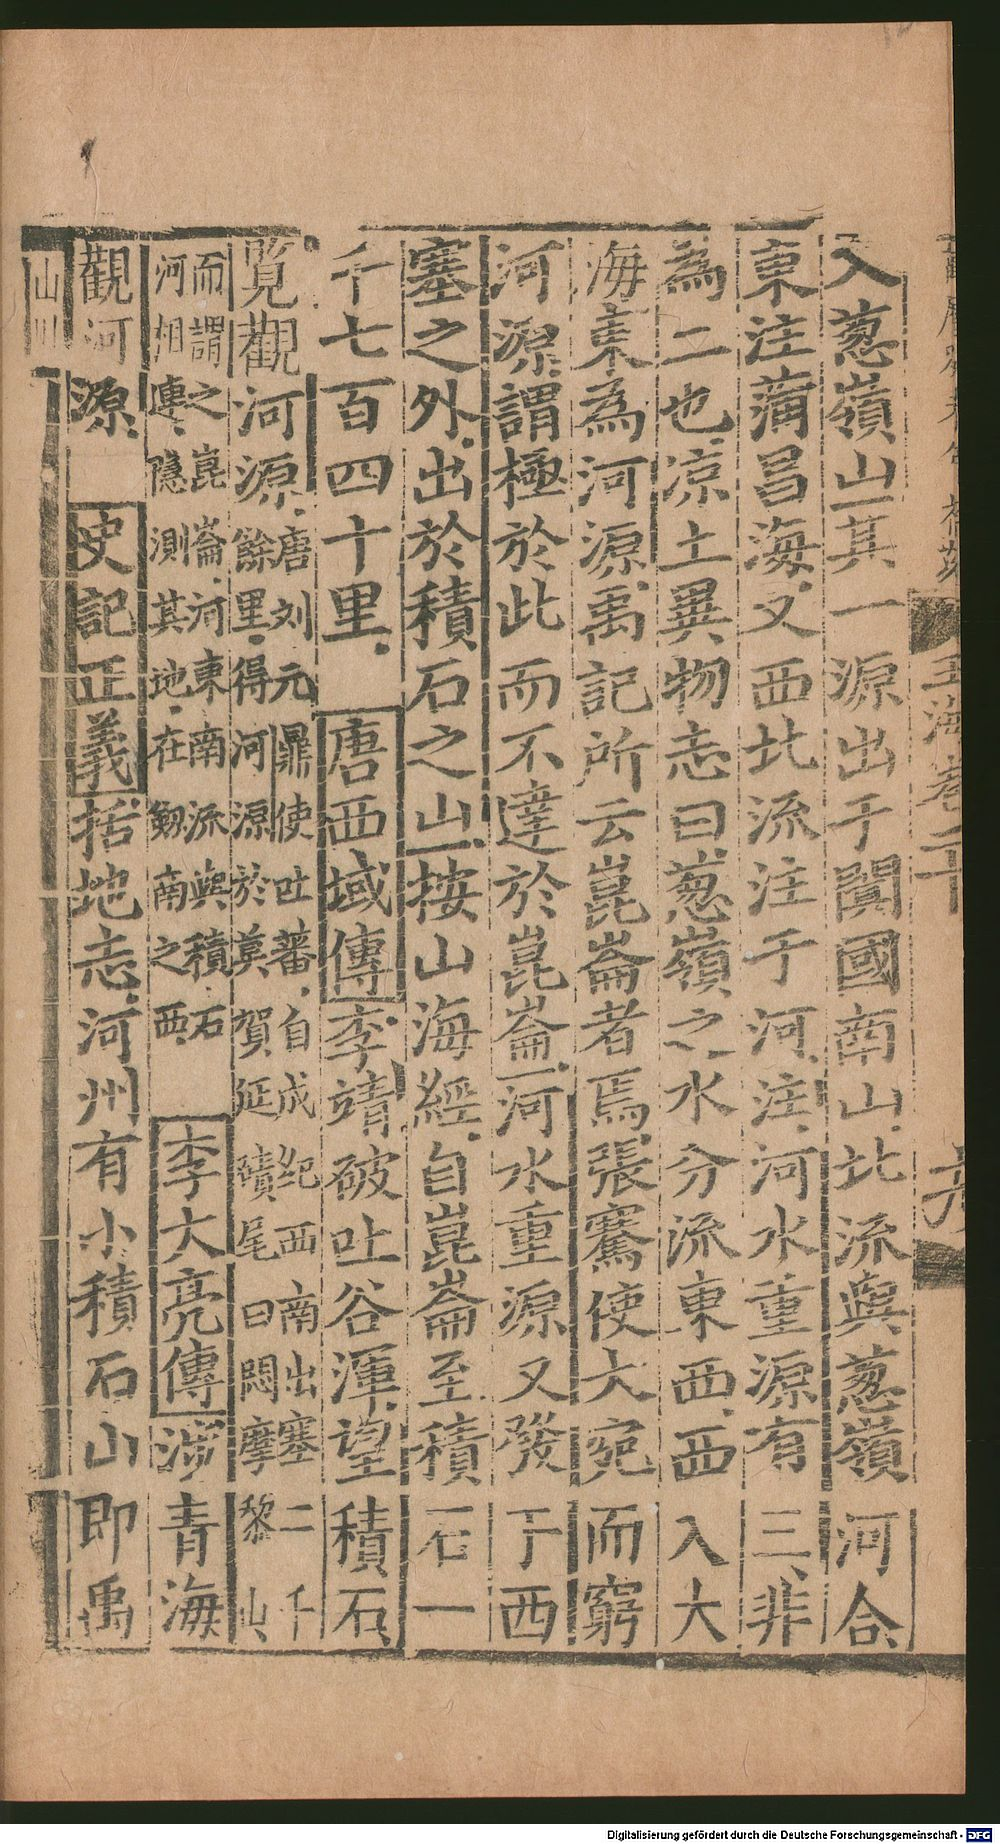 玉海卷二十
入葱嶺山其一源出于闐國南山北流與葱嶺河合
東注蒲昌海又西北流注于河注河水重源有三非
為二也涼土異物志曰葱嶺之水分流東西西入大
海東為河源禹記所云崑崙者焉張騫使大宛而窮
河源謂極於此而不達於崑崙河水重源又發于西
塞之外出於積石之山按山海經自崑崙至積石一
千七百四十里 唐西域傳李靖破吐谷渾望積石
覽觀河源唐刘元鼎使吐蕃自成紀西南出塞二千
餘里得河源於莫賀延磧尾曰悶摩黎山
而謂之崑崙河東南流與積石
河相連隱測其地在劍南之西 李大亮傳涉青海
觀河源 史記正義括地志河州有小積石山即禹
山川
Digitalisierung gefördert durch die Deutsche Forschungsgemeinschaft - DFG